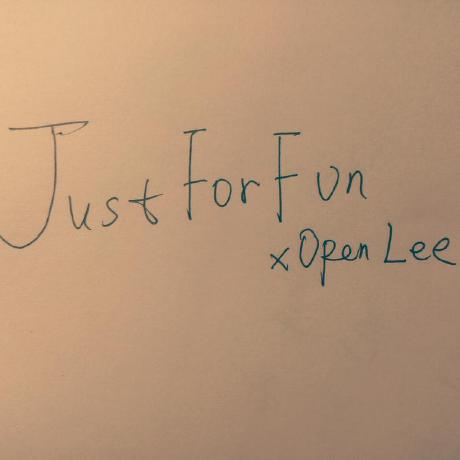 Just For Fun
x Open Lee